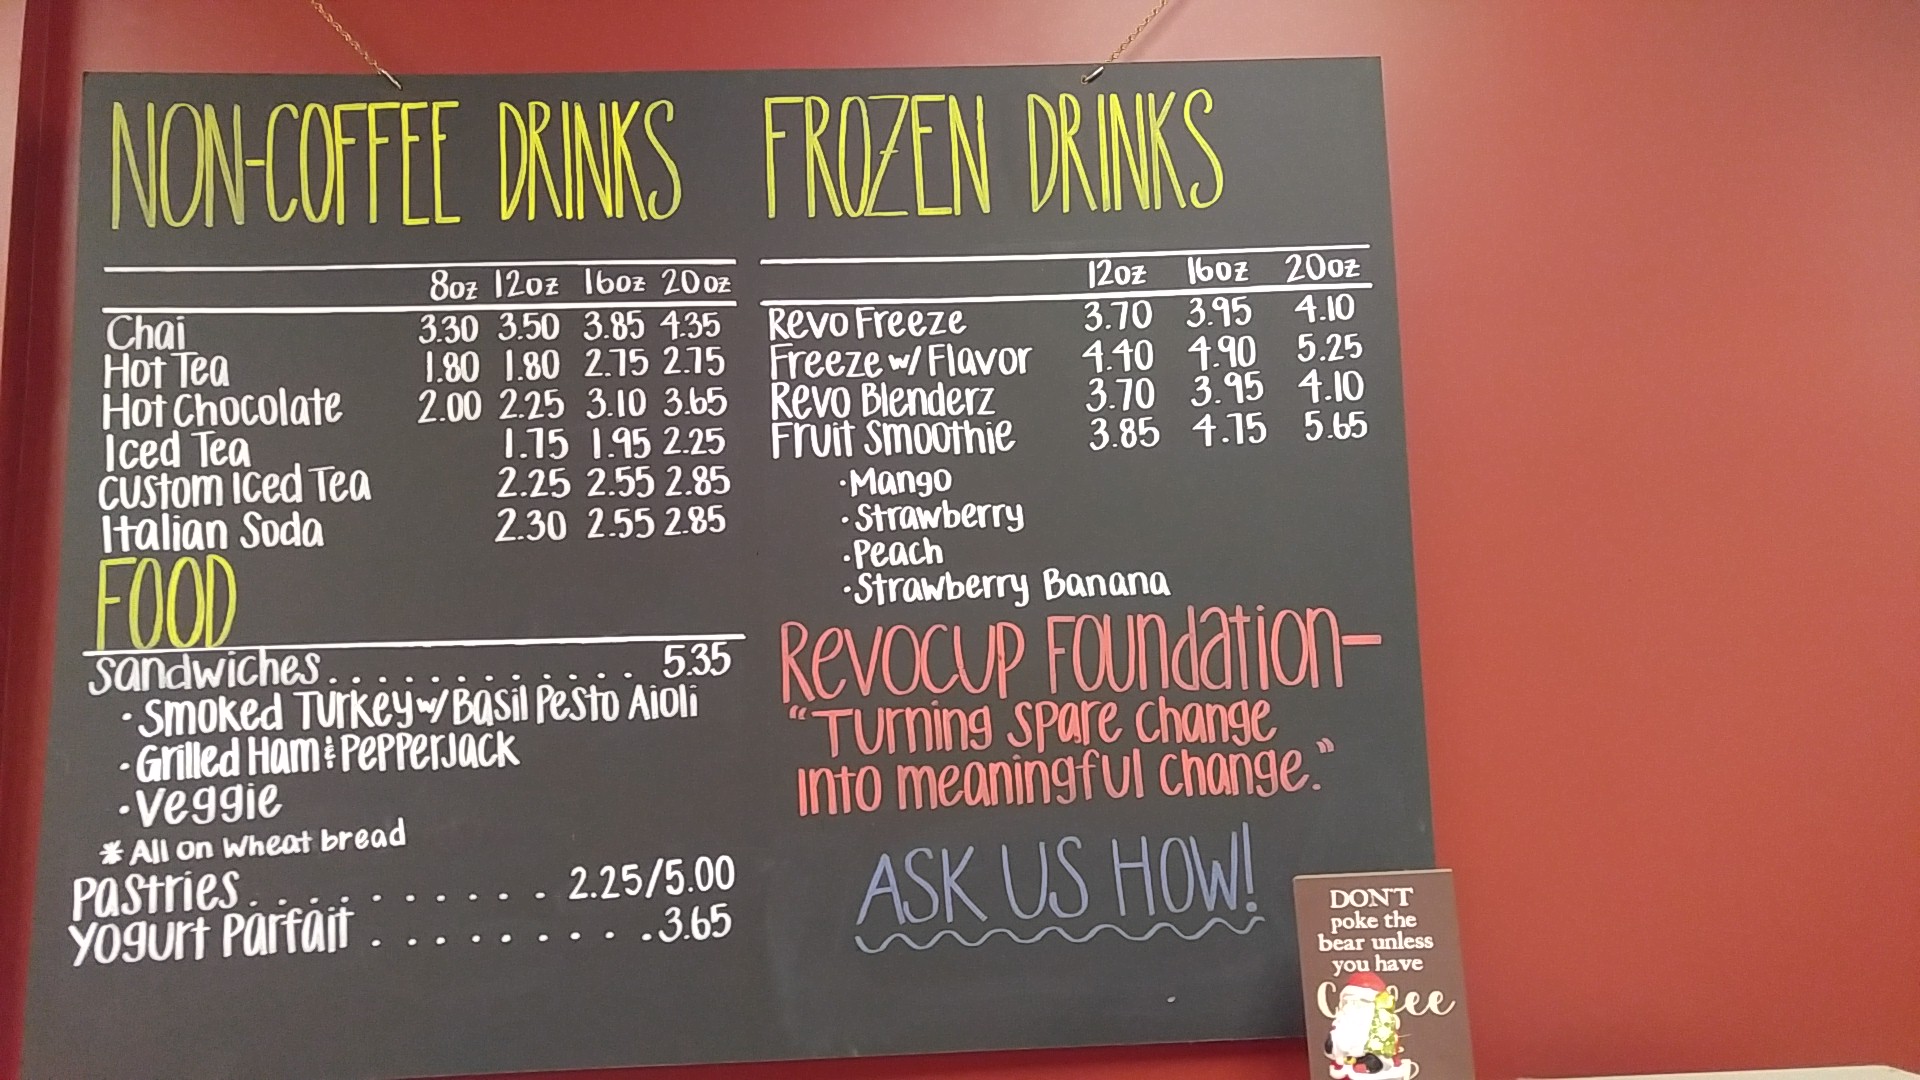 NON-COFFEE DRINKS
8oz 12oz 16oz 20oz
Chai 3.30 3.50 3.85 4.35
Hot Tea 1.80 1.80 2.75 2.75
Hot Chocolate 2.00 2.25 3.10 3.65
Iced Tea 1.75 1.95 2.25
Custom Iced Tea 2.25 2.55 2.85
Italian Soda 2.30 2.55 2.85
FOOD
Sandwiches............ 5.35
· Smoked Turkey w/ Basil Pesto Aioli
· Grilled Ham & Pepperjack
· Veggie
* All on wheat bread
Pastries........... 2.25/5.00
Yogurt Parfait.......... 3.65
FROZEN DRINKS
12oz 16oz 20oz
Revo Freeze 3.70 3.95 4.10
Freeze w/ Flavor 4.40 4.90 5.25
Revo Blenderz 3.70 3.95 4.10
Fruit Smoothie 3.85 4.75 5.65
· Mango
· Strawberry
· Peach
· Strawberry Banana
Revocup Foundation-
"Turning spare change
into meaningful change."
ASK US HOW!
DON'T
poke the
bear unless
you have